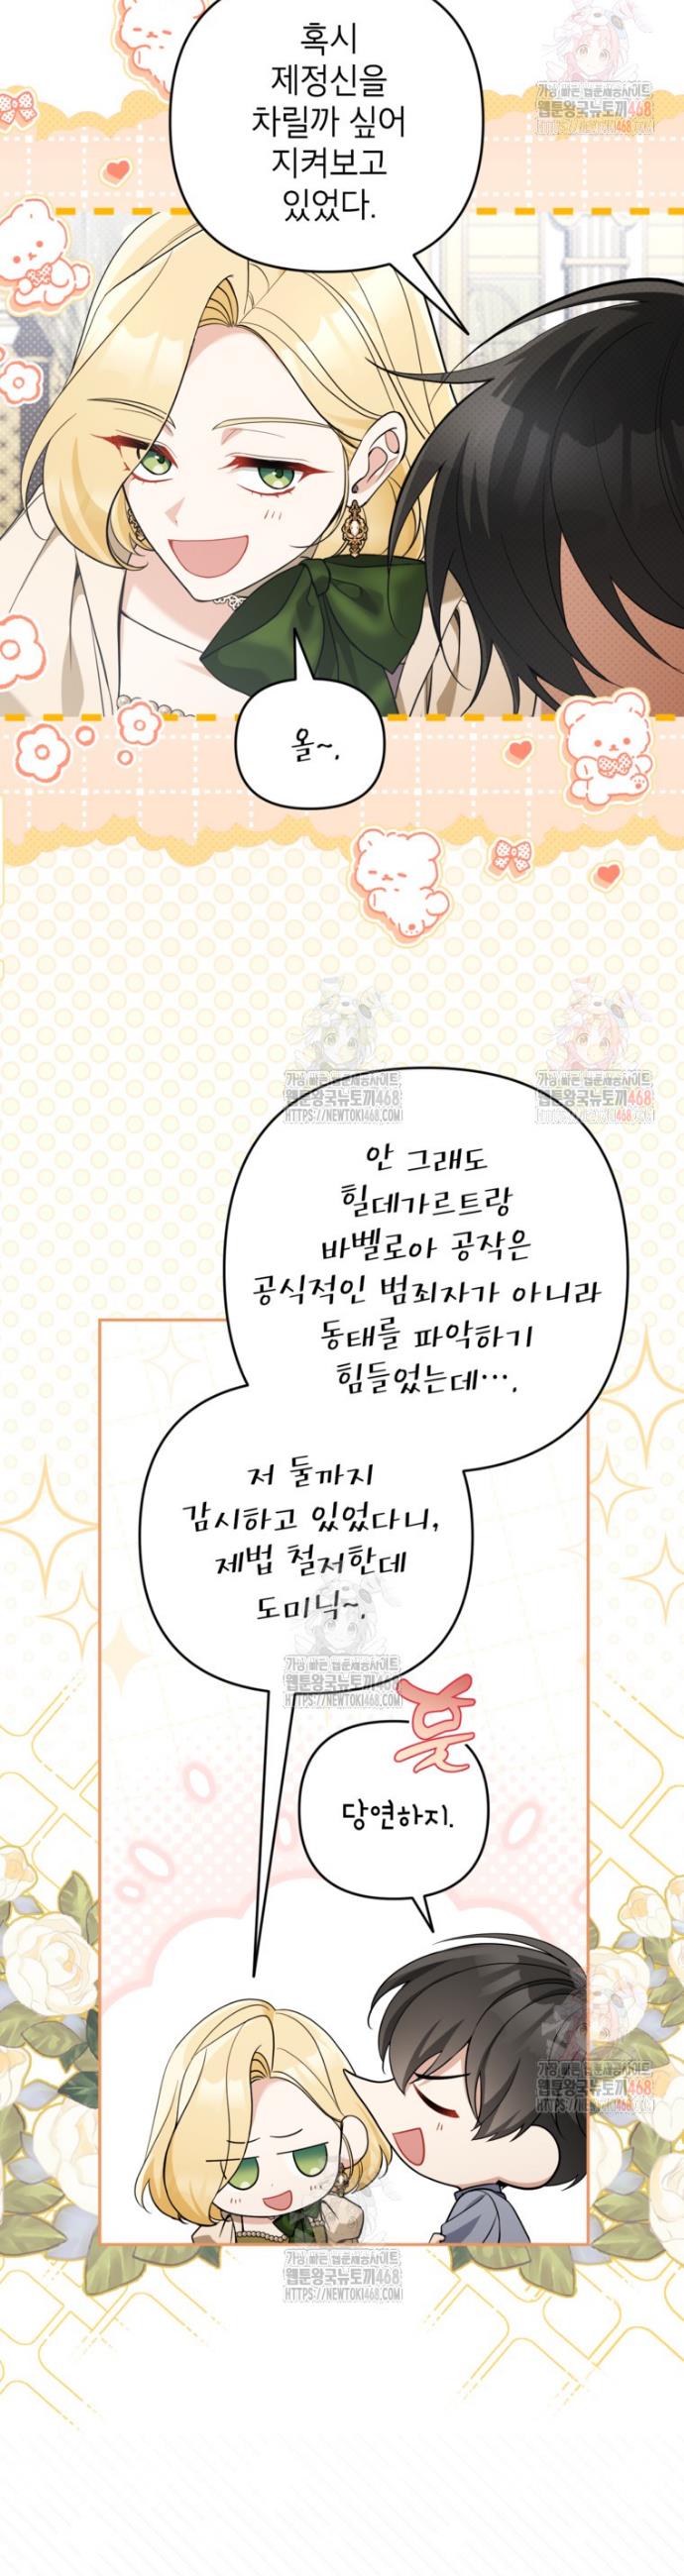 혹시
제정신을
차릴까 싶어
지켜보고
있었다.
가장 빠른 웹툰제공사이트
웹툰왕국뉴토끼468
HTTPS://NEWTOKI468.COM
올~.
가장 빠른 웹툰제공사이트
웹툰왕국뉴토끼468
HTTPS://NEWTOKI468.COM
가장 빠른 웹툰제공사이트
웹툰왕국뉴토끼468
HTTPS://NEWTOKI468.COM
안 그래도
힐데가르트랑
바벨로아 공작은
공식적인 범죄자가 아니라
동태를 파악하기
힘들었는데….
저 둘까지
감시하고 있었다니,
제법 철저한데
도미닉~.
가장 빠른 웹툰제공사이트
웹툰왕국뉴토끼468
HTTPS://NEWTOKI468.COM
훗
당연하지.
가장 빠른 웹툰제공사이트
웹툰왕국뉴토끼468
HTTPS://NEWTOKI468.COM
가장 빠른 웹툰제공사이트
웹툰왕국뉴토끼468
HTTPS://NEWTOKI468.COM